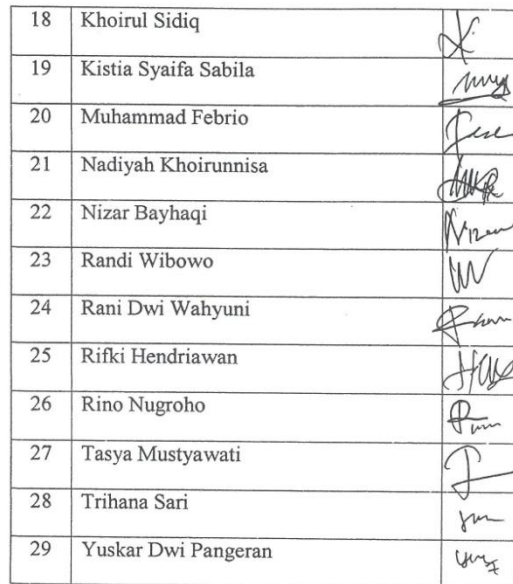 18 Khoirul Sidiq
19 Kistia Syaifa Sabila
20 Muhammad Febrio
21 Nadiyah Khoirunnisa
22 Nizar Bayhaqi
23 Randi Wibowo
24 Rani Dwi Wahyuni
25 Rifki Hendriawan
26 Rino Nugroho
27 Tasya Mustyawati
28 Trihana Sari
29 Yuskar Dwi Pangeran